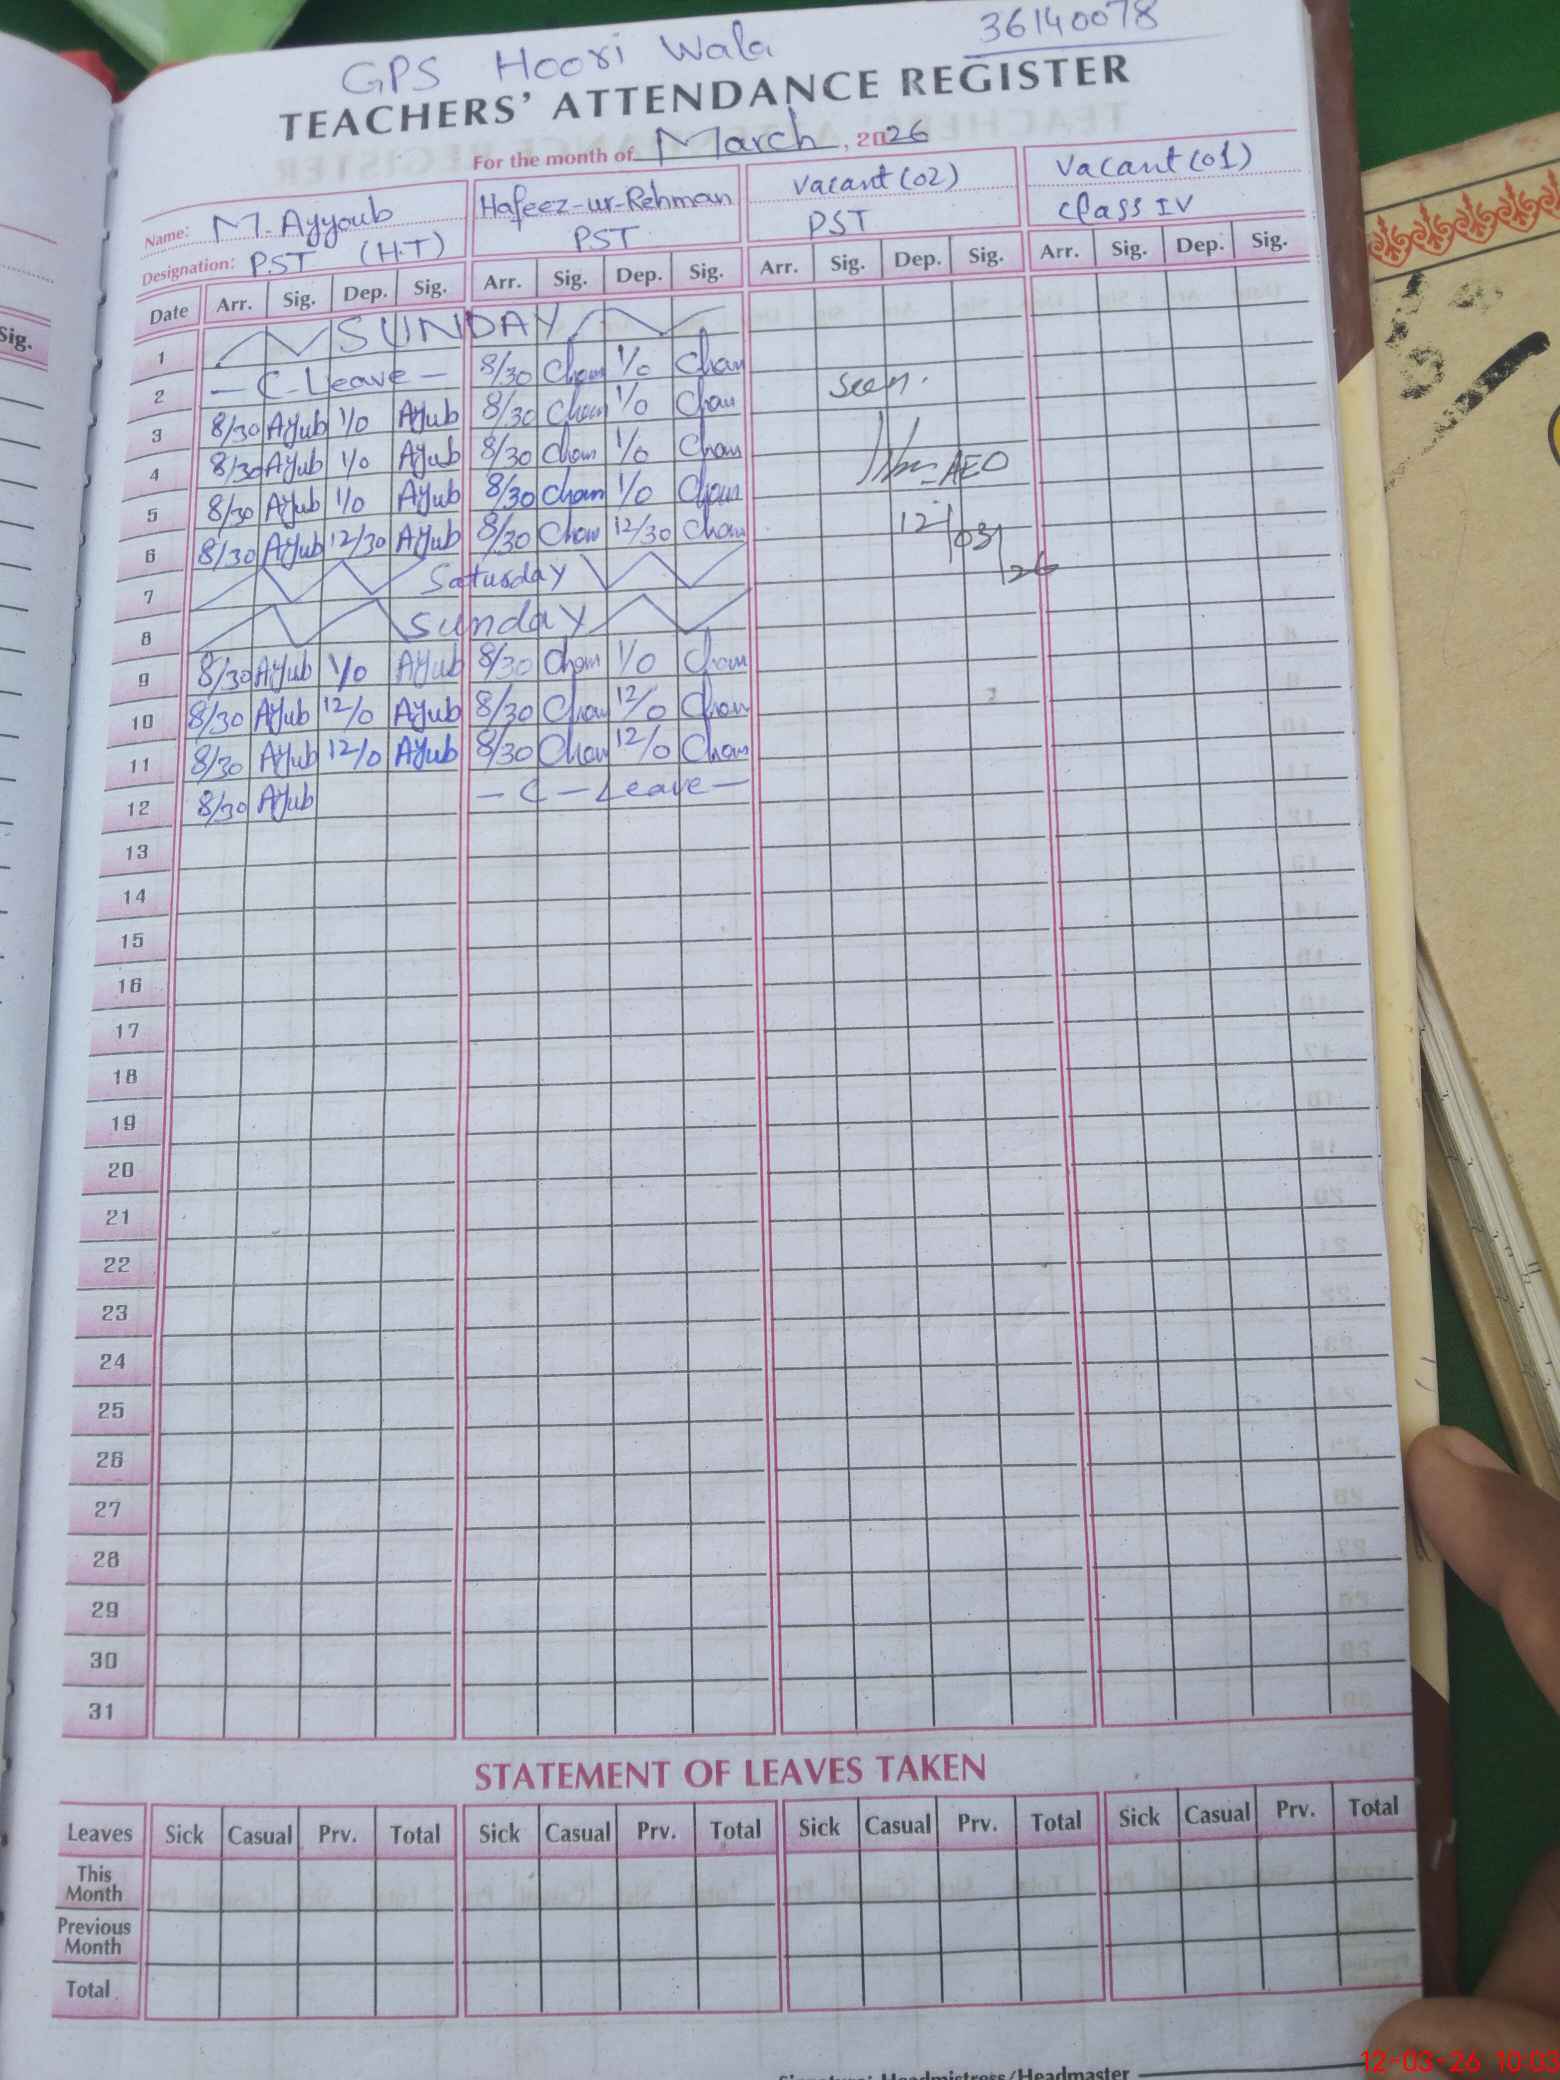 GPS Hoori Wala 36140078
TEACHERS' ATTENDANCE REGISTER
For the month of March, 2026
Name: M. Ayyoub Hafeez-ur-Rehman Vacant (02) Vacant (01)
Designation: PST (H.T) PST PST Class IV
Date Arr. Sig. Dep. Sig. Arr. Sig. Dep. Sig. Arr. Sig. Dep. Sig. Arr. Sig. Dep. Sig.
1 SUNDAY
2 - C - Leave - 8/30 Cham 1/0 Cham
3 8/30 Ayub 1/0 Ayub 8/30 Cham 1/0 Cham seen.
4 8/30 Ayub 1/0 Ayub 8/30 Cham 1/0 Cham
5 8/30 Ayub 1/0 Ayub 8/30 Cham 1/0 Cham AEO
6 8/30 Ayub 12/30 Ayub 8/30 Cham 12/30 Cham 12/03/26
7 Saturday
8 Sunday
9 8/30 Ayub 1/0 Ayub 8/30 Cham 1/0 Cham
10 8/30 Ayub 12/0 Ayub 8/30 Cham 12/0 Cham
11 8/30 Ayub 12/0 Ayub 8/30 Cham 12/0 Cham
12 8/30 Ayub - C - Leave -
13
14
15
16
17
18
19
20
21
22
23
24
25
26
27
28
29
30
31
STATEMENT OF LEAVES TAKEN
Leaves Sick Casual Prv. Total Sick Casual Prv. Total Sick Casual Prv. Total Sick Casual Prv. Total
This Month
Previous Month
Total
Headmistress/Headmaster
12-03-26 10:03
Sig.